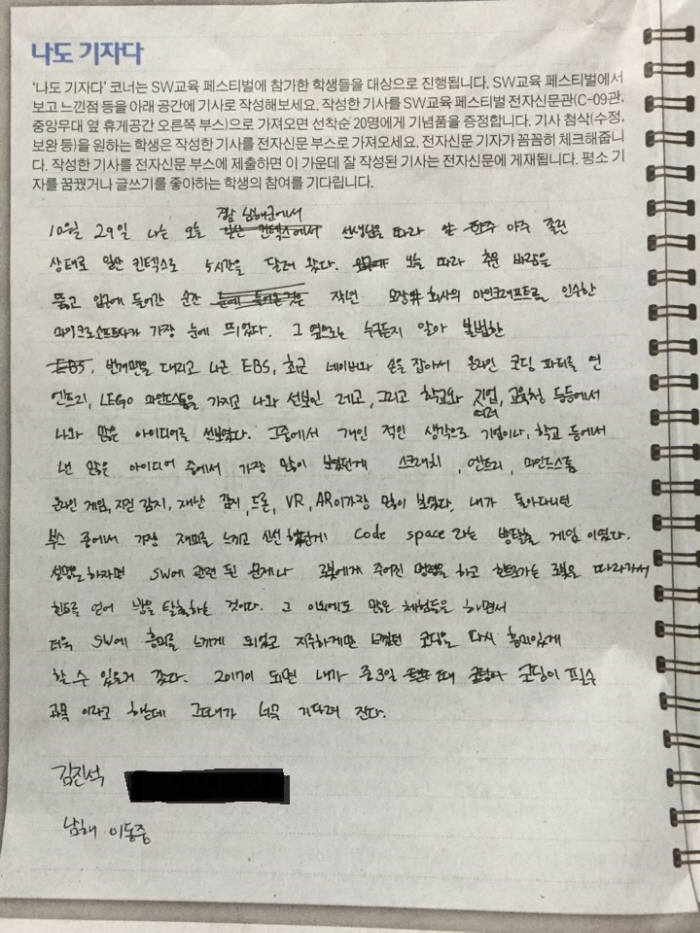 나도 기자다
'나도 기자다' 코너는 SW교육 페스티벌에 참가한 학생들을 대상으로 진행됩니다. SW교육 페스티벌에서
보고 느낀점 등을 아래 공간에 기사로 작성해보세요. 작성한 기사를 SW교육 페스티벌 전자신문관(C-09관,
중앙무대 옆 휴게공간 오른쪽 부스)으로 가져오면 선착순 20명에게 기념품을 증정합니다. 기사 첨삭(수정,
보완 등)을 원하는 학생은 작성한 기사를 전자신문 부스로 가져오세요. 전자신문 기자가 꼼꼼히 체크해줍니
다. 작성한 기사를 전자신문 부스에 제출하면 이 가운데 잘 작성된 기사는 전자신문에 게재됩니다. 평소 기
자를 꿈꿨거나 글쓰기를 좋아하는 학생의 참여를 기다립니다.
남해군에서
10월 29일 나는 오늘 선생님을 따라 아주 졸린
상태로 일산 킨텍스로 5시간을 달려 왔다. 오늘 따라 추운 바람을
뚫고 입구에 들어간 순간 작년 모장 회사의 마인크래프트를 인수한
마이크로소프트사가 가장 눈에 띄었다. 그 옆으로는 누구든지 알아 볼법한
번개맨을 데리고 나온 EBS, 최근 네이버와 손을 잡아서 온라인 코딩 파티를 연
엔트리, LEGO 마인드스톰을 가지고 나와 선보인 레고, 그리고 학교와 기업, 교육청 등등에서
여러
나와 많은 아이디어를 선보였다. 그중에서 개인 적인 생각으로 기업이나, 학교 등에서
낸 많은 아이디어 중에서 가장 많이 보였던게 스크래치, 엔트리, 마인드스톰
온라인 게임, 지진 감지, 재난 감지, 드론, VR, AR이 가장 많이 보였다. 내가 돌아다니던
부스 중에서 가장 재미를 느끼고 신선했던게 code space 라는 방탈출 게임 이였다.
설명을 하자면 SW에 관련 된 문제나 로봇에게 주어진 명령을 하고 힌트가는 로봇을 따라가서
힌트를 얻어 방을 탈출하는 것이다. 그 이외에도 많은 체험들을 하면서
더욱 SW에 흥미를 느끼게 되었고 지루하게만 느꼈던 코딩을 다시 흥미있게
할 수 있을거 같다. 2017이 되면 내가 중3일 때 코딩이 필수
과목 이라고 하는데 그때가 너무 기다려 진다.
김진석
남해 이동중